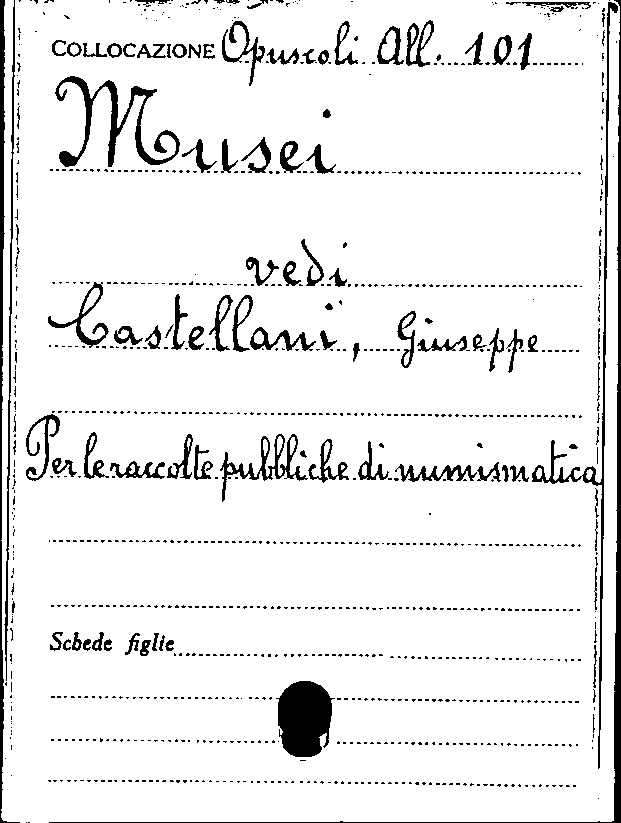 COLLOCAZIONE Opuscoli All. 101
Musei
vedi
Castellani, Giuseppe
Per le raccolte pubbliche di numismatica
Schede figlie